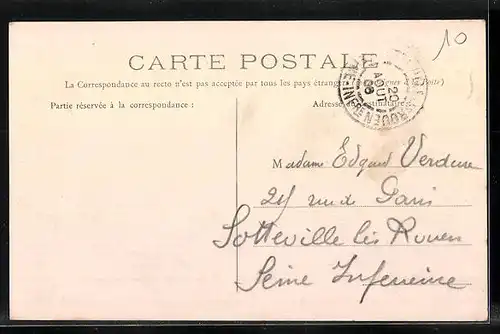 10
CARTE POSTALE
La Correspondance au recto n'est pas acceptée par tous les pays étrangers à la Poste)
Partie réservée à la correspondance :
Adresse destinataire
20
AOUT
06
Madame Edgard Verdure
rue de Paris
Sotteville lès Rouen
Seine Inférieure